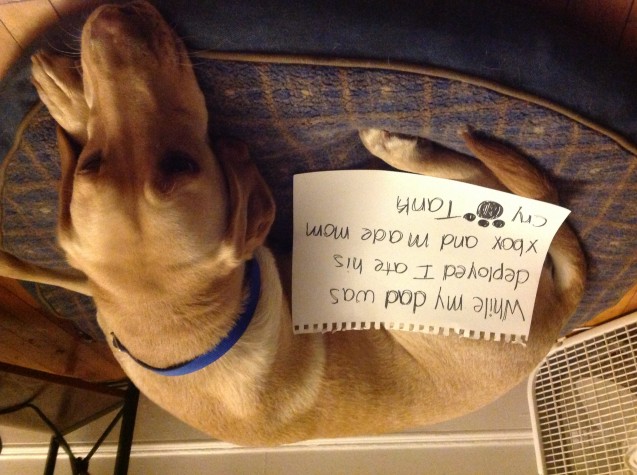 While my dad was
deployed I ate his
xbox and made mom
cry Tank